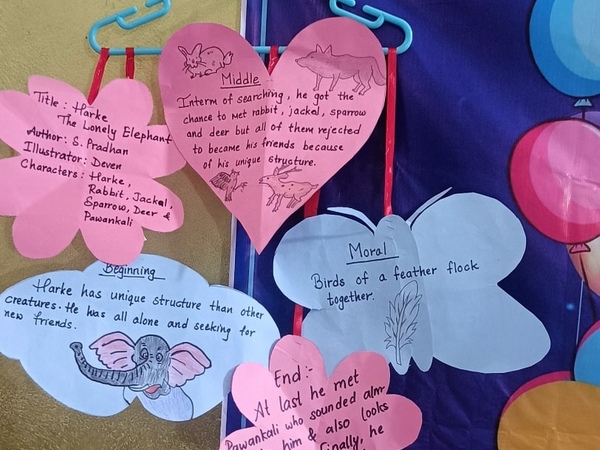 Title : Harke
The Lonely Elephant
Author: S. Pradhan
Illustrator: Deven
Characters : Harke,
Rabbit, Jackal,
Sparrow, Deer &
Pawankali
Middle
Interm of searching, he got the
chance to met rabbit, jackal, sparrow
and deer but all of them rejected
to became his friends because
of his unique structure.
Beginning
Harke has unique structure than other
creatures. He was all alone and seeking for
new friends.
Moral
Birds of a feather flock
together.
End :-
At last he met
Pawankali who sounded alm-
him & also looks
Finally, he